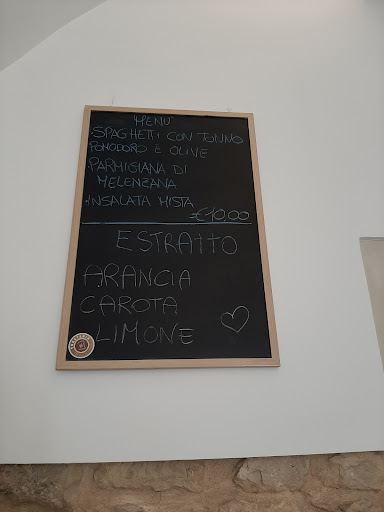 MENU'
SPAGHETTI CON TONNO
POMODORO E OLIVE
PARMIGIANA DI
MELENZANA
INSALATA MISTA
€10,00
ESTRATTO
ARANCIA
CAROTA
LIMONE